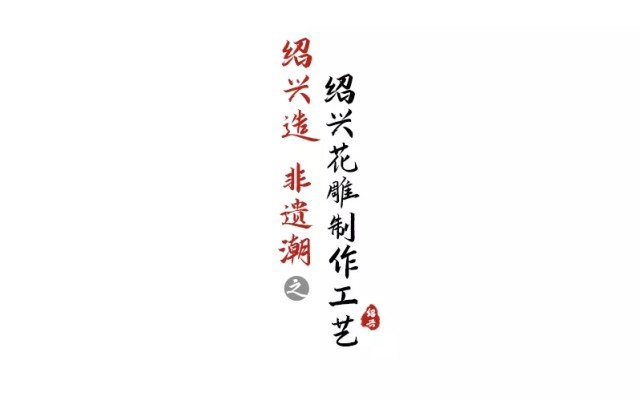 绍兴造 非遗潮之
绍兴花雕制作工艺
绍兴